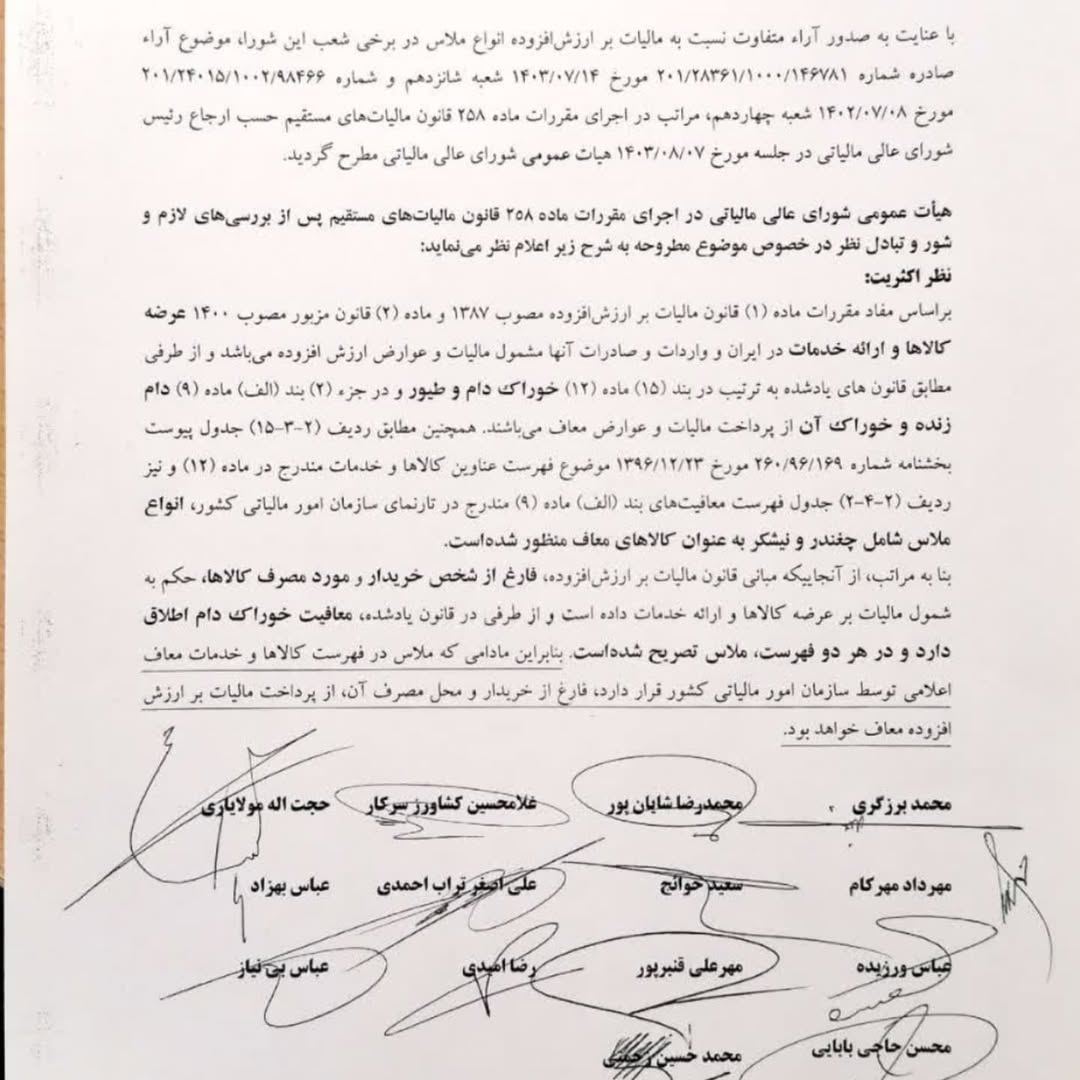 با عنایت به صدور آراء متفاوت نسبت به مالیات بر ارزش‌افزوده انواع ملاس در برخی شعب این شورا، موضوع آراء
صادره شماره ۲۰۱/۲۸۳۶۱/۱۰۰۰/۱۴۶۷۸۱ مورخ ۱۴۰۳/۰۷/۱۴ شعبه شانزدهم و شماره ۲۰۱/۲۴۰۱۵/۱۰۰۲/۹۸۴۶۶
مورخ ۱۴۰۲/۰۷/۰۸ شعبه چهاردهم، مراتب در اجرای مقررات ماده ۲۵۸ قانون مالیات‌های مستقیم حسب ارجاع رئیس
شورای عالی مالیاتی در جلسه مورخ ۱۴۰۳/۰۸/۰۷ هیات عمومی شورای عالی مالیاتی مطرح گردید.
هیأت عمومی شورای عالی مالیاتی در اجرای مقررات ماده ۲۵۸ قانون مالیات‌های مستقیم پس از بررسی‌های لازم و
شور و تبادل نظر در خصوص موضوع مطروحه به شرح زیر اعلام نظر می‌نماید:
نظر اکثریت:
براساس مفاد مقررات ماده (۱) قانون مالیات بر ارزش‌افزوده مصوب ۱۳۸۷ و ماده (۲) قانون مزبور مصوب ۱۴۰۰ عرضه
کالاها و ارائه خدمات در ایران و واردات و صادرات آنها مشمول مالیات و عوارض ارزش افزوده می‌باشد و از طرفی
مطابق قانون های یادشده به ترتیب در بند (۱۵) ماده (۱۲) خوراک دام و طیور و در جزء (۲) بند (الف) ماده (۹) دام
زنده و خوراک آن از پرداخت مالیات و عوارض معاف می‌باشند. همچنین مطابق ردیف (۲-۳-۱۵) جدول پیوست
بخشنامه شماره ۲۶۰/۹۶/۱۶۹ مورخ ۱۳۹۶/۱۲/۲۳ موضوع فهرست عناوین کالاها و خدمات مندرج در ماده (۱۲) و نیز
ردیف (۲-۴-۲) جدول فهرست معافیت‌های بند (الف) ماده (۹) مندرج در تارنمای سازمان امور مالیاتی کشور، انواع
ملاس شامل چغندر و نیشکر به عنوان کالاهای معاف منظور شده‌است.
بنا به مراتب، از آنجاییکه مبانی قانون مالیات بر ارزش‌افزوده، فارغ از شخص خریدار و مورد مصرف کالاها، حکم به
شمول مالیات بر عرضه کالاها و ارائه خدمات داده است و از طرفی در قانون یادشده، معافیت خوراک دام اطلاق
دارد و در هر دو فهرست، ملاس تصریح شده‌است. بنابراین مادامی که ملاس در فهرست کالاها و خدمات معاف
اعلامی توسط سازمان امور مالیاتی کشور قرار دارد، فارغ از خریدار و محل مصرف آن، از پرداخت مالیات بر ارزش
افزوده معاف خواهد بود.
محمد برزگری محمدرضا شایان پور غلامحسین کشاورز سرکار حجت اله مولایاری
مهرداد مهرکام سعید حوائج علی اصغر تراب احمدی عباس بهزاد
عباس ورزیده مهرعلی قنبرپور رضا امیدی عباس بی نیاز
محسن حاجی بابایی محمد حسین رجبی